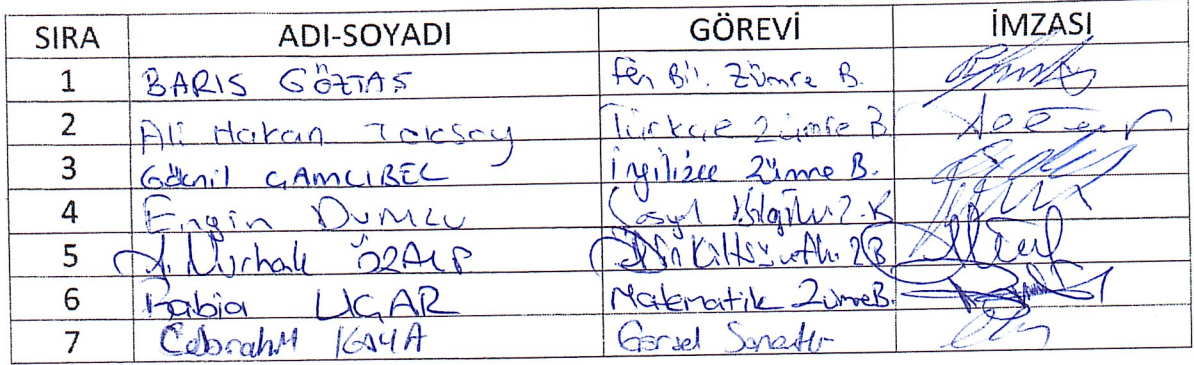 SIRA ADI-SOYADI GÖREVİ İMZASI
1 BARIS GÖZTAŞ Fen Bil. Zümre B.
2 Ali Hakan Toksoy Türkçe Zümre B
3 GAMLIBEL İngilizce Zümre B.
4 Engin DUMLU Sosyal
5 Nurhak ÖZALP Din
6 Rabia UÇAR Matematik Zümre B.
7 KAYA Görsel Sanatlar